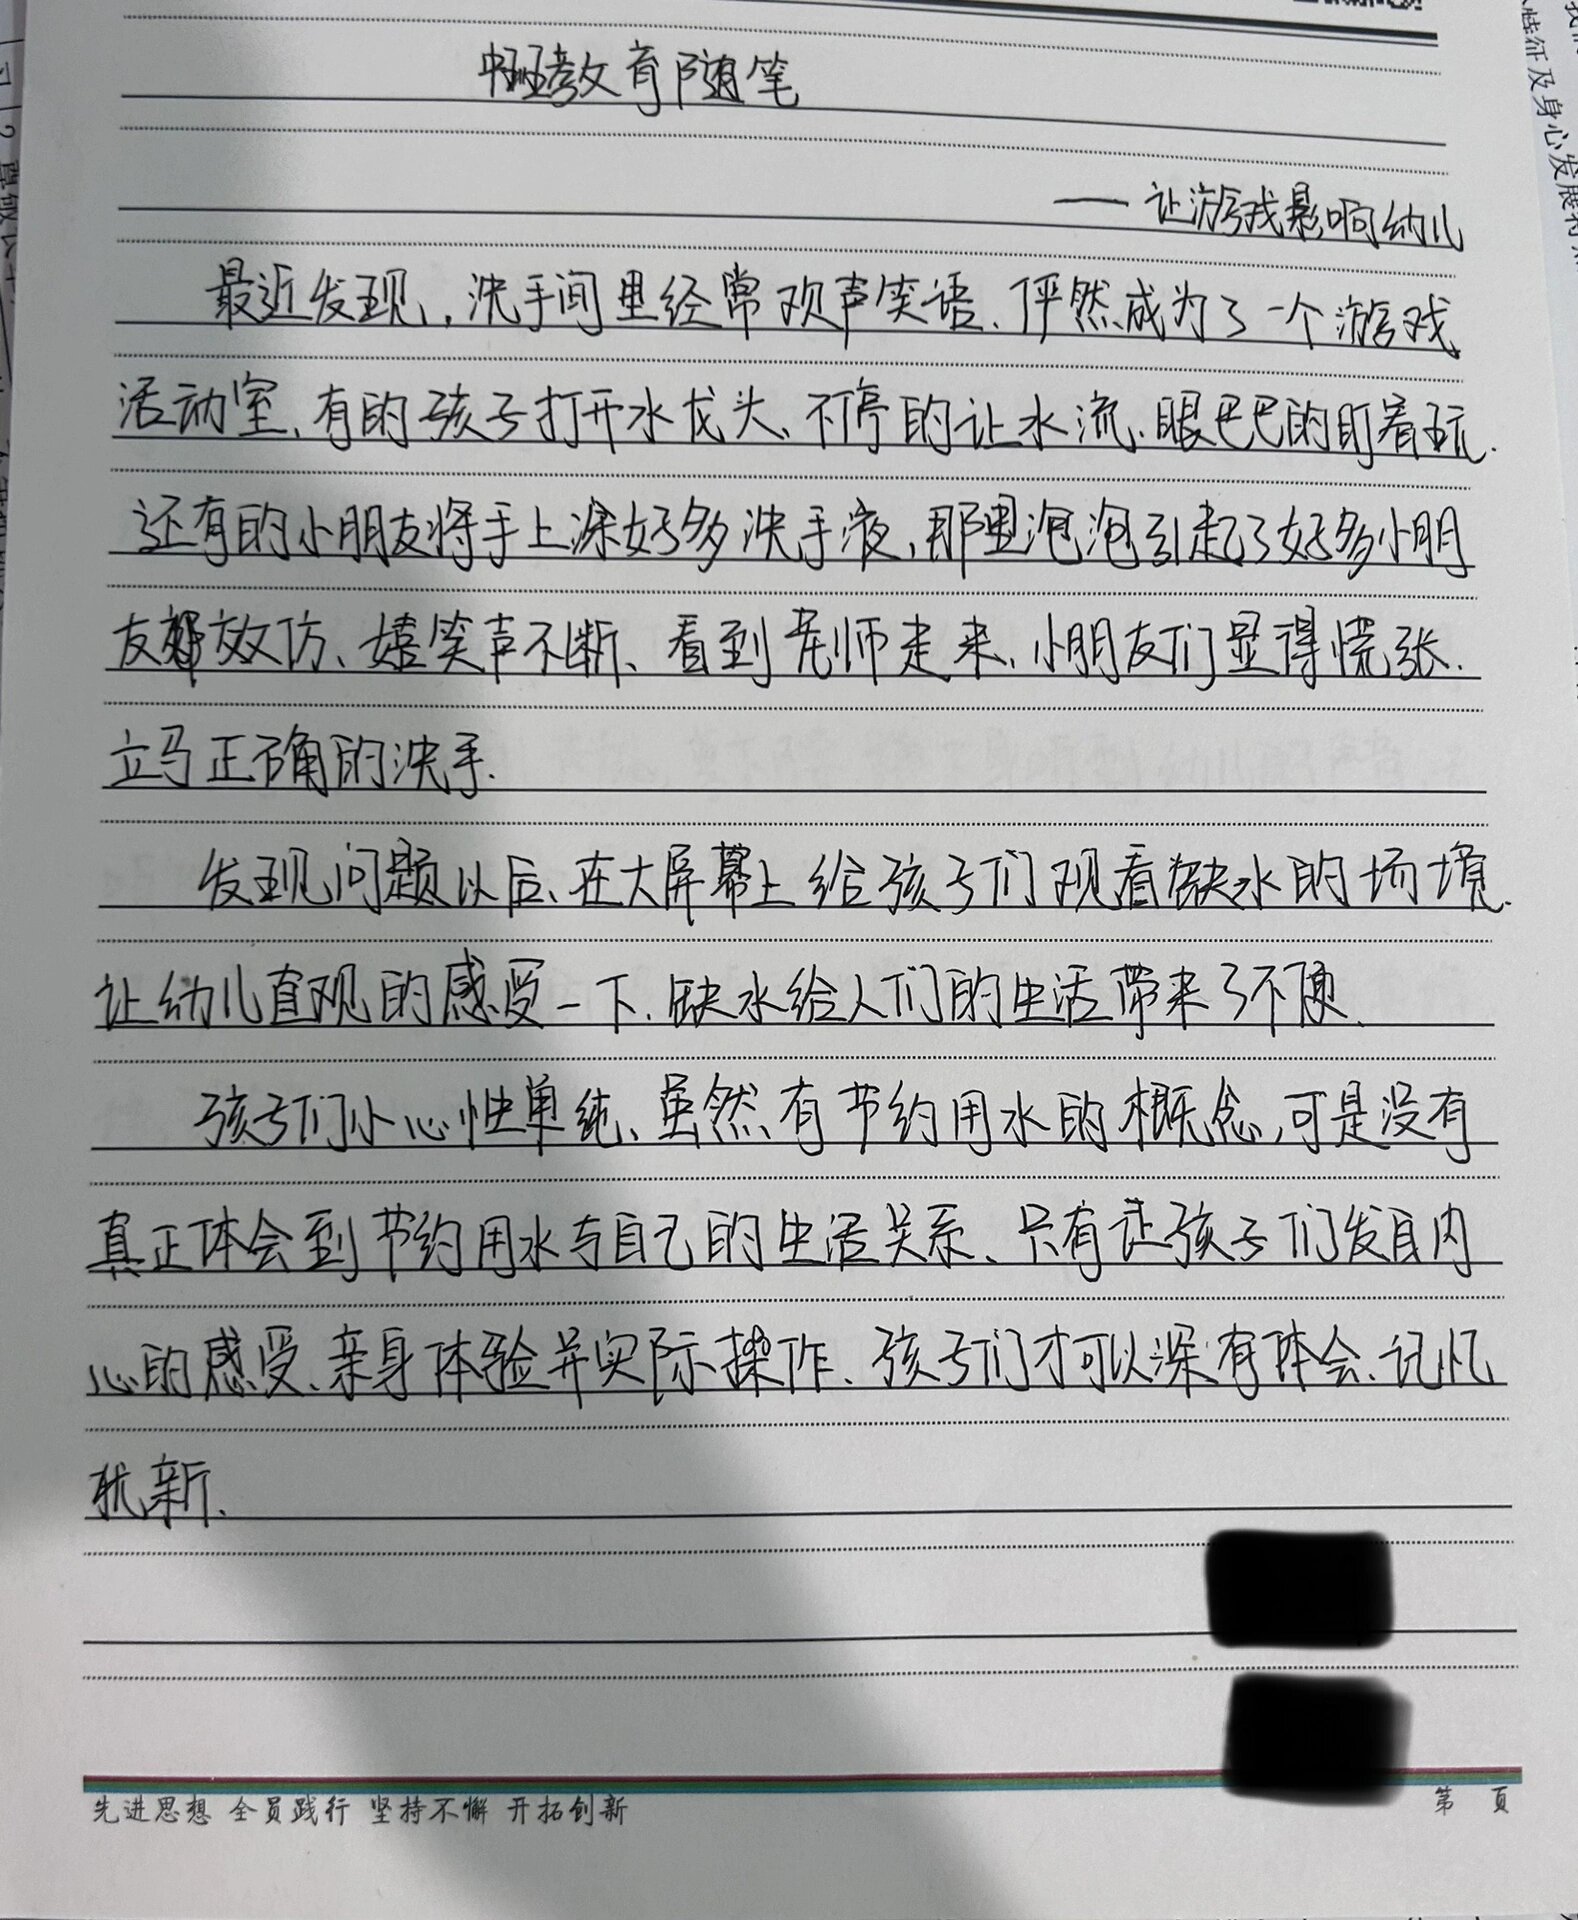 中班教育随笔
——让游戏影响幼儿
最近发现，洗手间里经常欢声笑语、俨然成为了一个游戏
活动室、有的孩子打开水龙头、不停的让水流、眼巴巴的盯着玩.
还有的小朋友将手上涂好多洗手液、那里泡泡引起了好多小朋
友效仿、嬉笑声不断、看到老师走来、小朋友们显得慌张.
立马正确的洗手.
发现问题以后、在大屏幕上给孩子们观看缺水的场境.
让幼儿直观的感受一下.缺水给人们的生活带来了不便.
孩子们小心性单纯、虽然有节约用水的概念,可是没有
真正体会到节约用水与自己的生活关系、只有让孩子们发自内
心的感受、亲身体验并实际操作、孩子们才可以深有体会、记忆
犹新.
先进思想 全员践行 坚持不懈 开拓创新
第 页